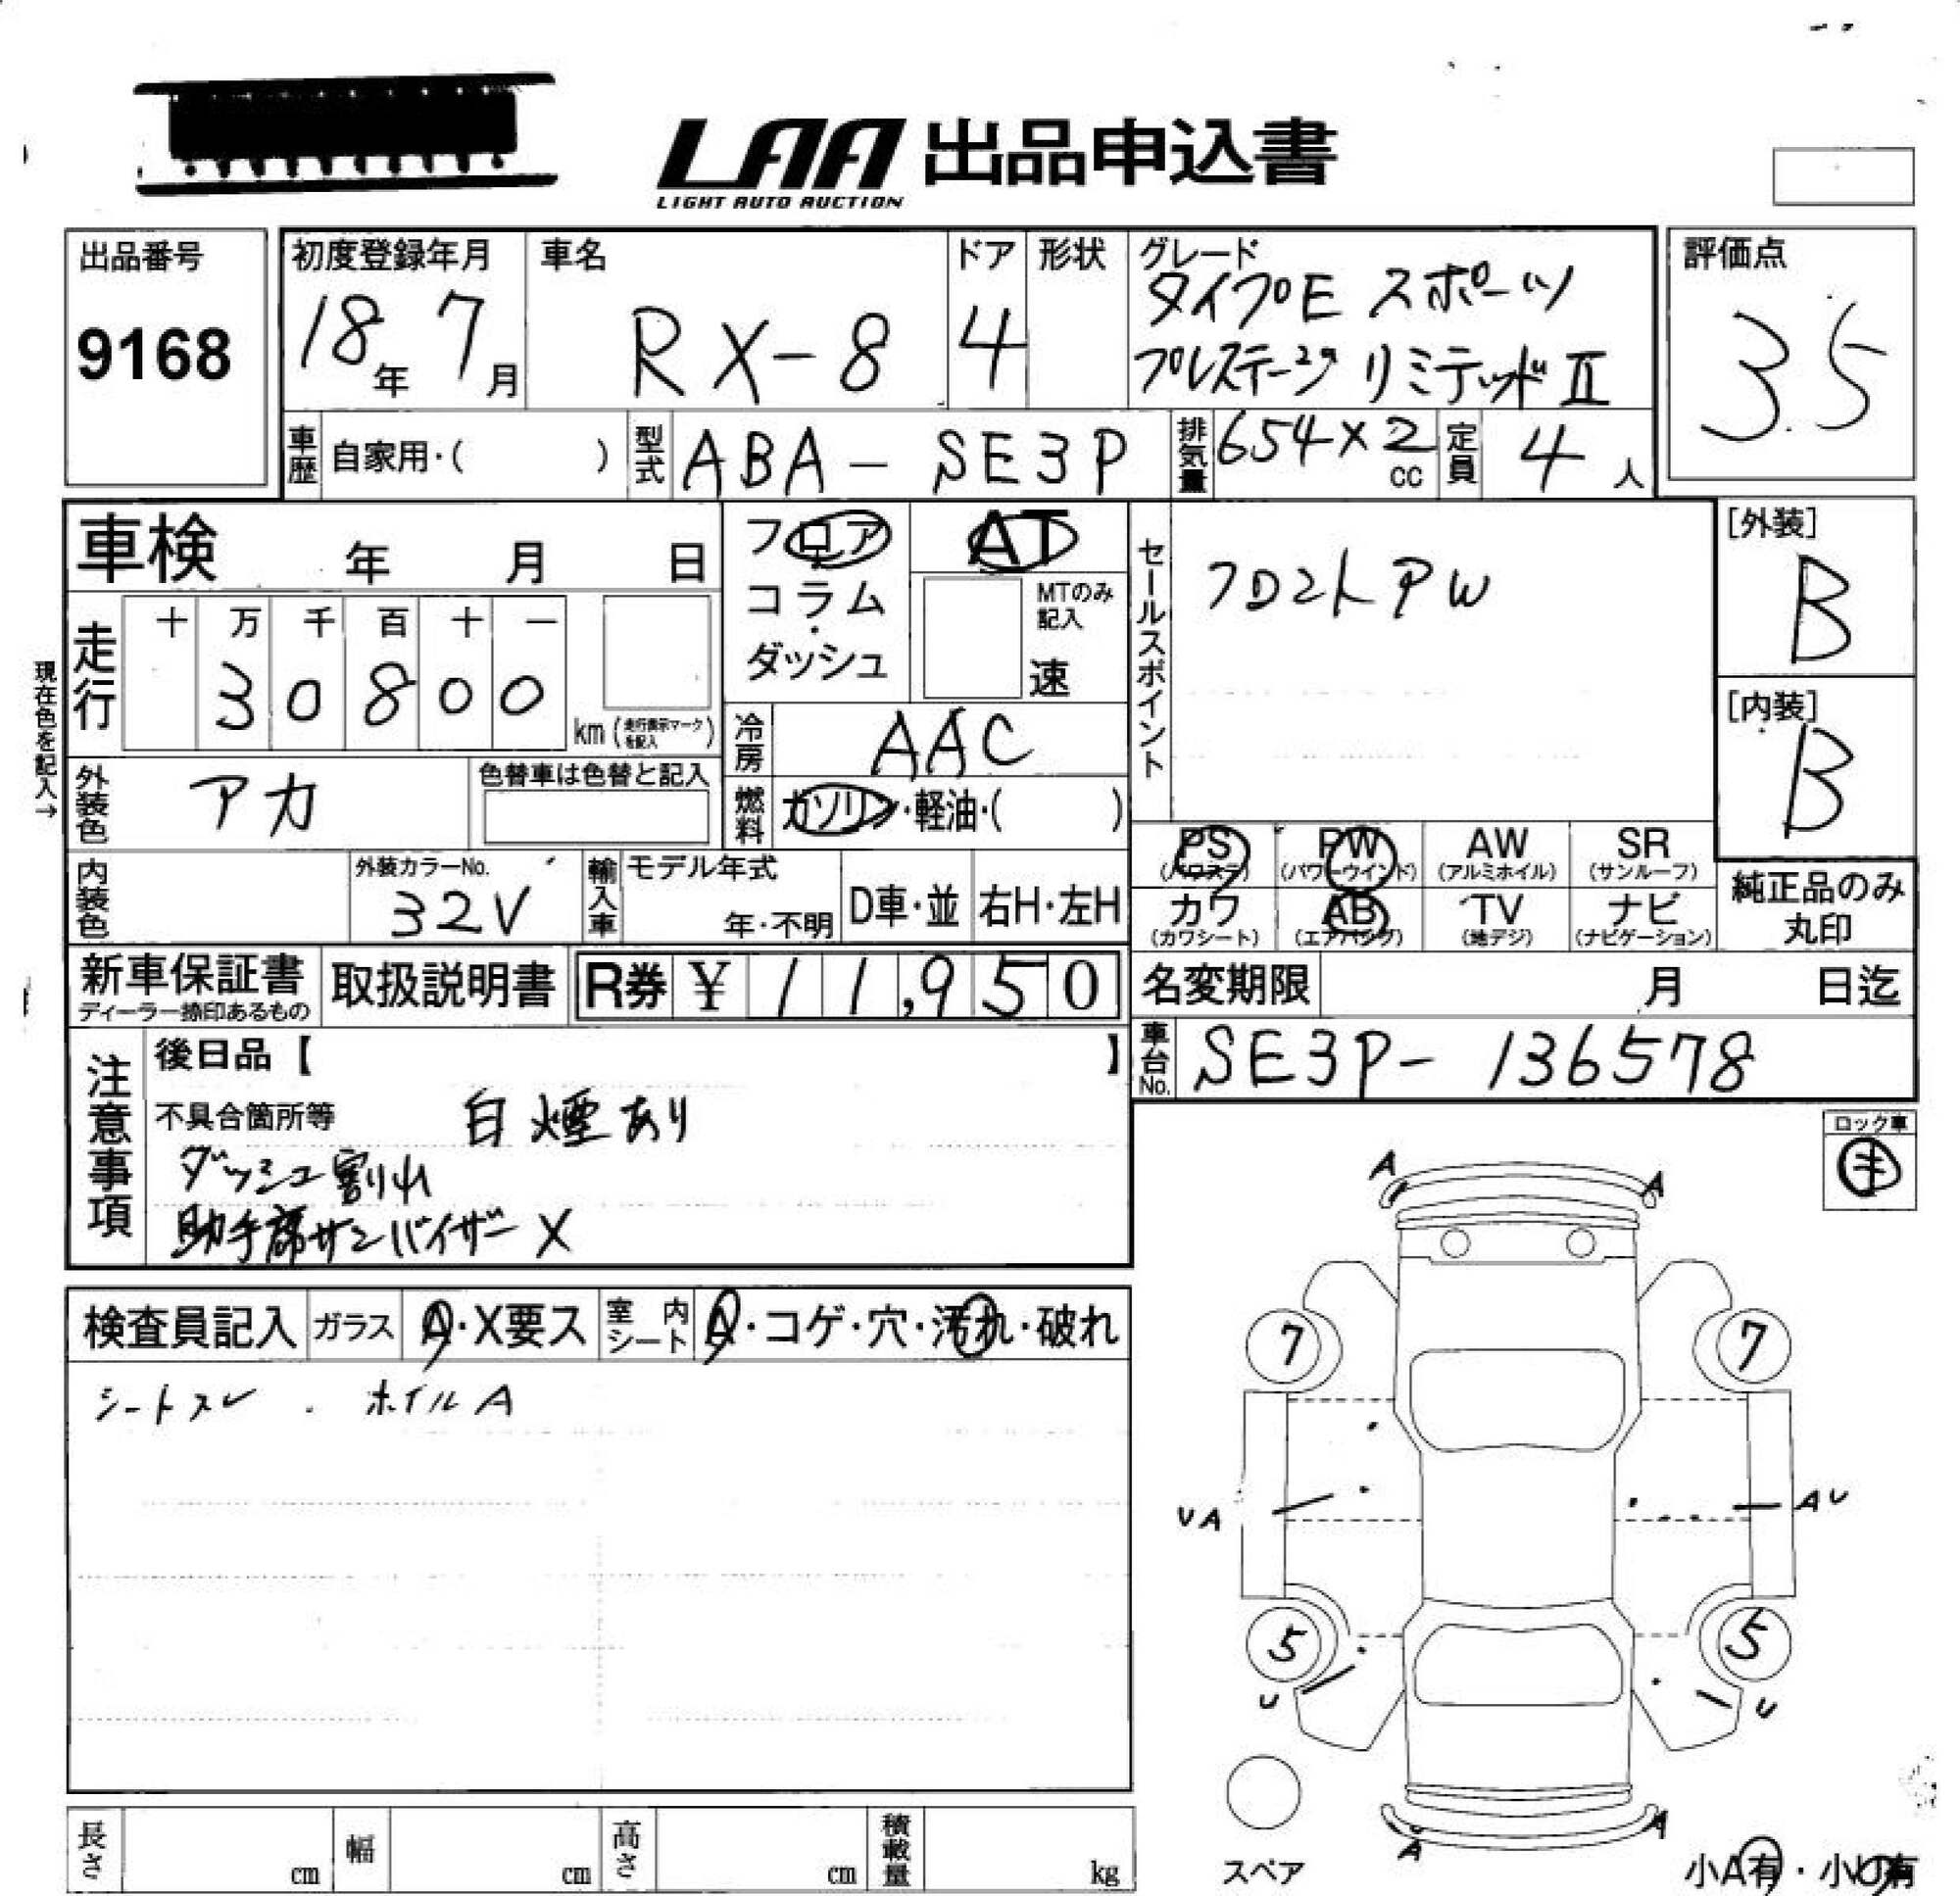 LAA 出品申込書
LIGHT AUTO AUCTION
出品番号
9168
初度登録年月
18年 7月
車名
RX-8
ドア
4
形状
グレード
タイプE スポーツ
プレステージ リミテッド II
評価点
3.5
車歴 自家用・( )
型式 ABA-SE3P
排気量 654×2 cc
定員 4 人
車検 年 月 日
フロア
コラム
・
ダッシュ
AT
MTのみ
記入
速
セールスポイント
フロントPW
[外装]
B
[内装]
B
現在色を記入→
走行
十 万 千 百 十 一
3 0 8 0 0
km (走行表示マークを記入)
冷房 AAC
外装色 アカ
色替車は色替と記入
燃料 ガソリン・軽油・( )
内装色
外装カラーNo.
32V
輸入車
モデル年式
年・不明
D車・並
右H・左H
PS (パワステ)
PW (パワーウインド)
AW (アルミホイル)
SR (サンルーフ)
カワ (カワシート)
AB (エアバッグ)
TV (地デジ)
ナビ (ナビゲーション)
純正品のみ
丸印
新車保証書
ディーラー捺印あるもの
取扱説明書
R券 ¥ 11,950
名変期限 月 日迄
車台No. SE3P-136578
注意事項
後日品【 】
不具合箇所等 白煙あり
ダッシュ割れ
助手席サンバイザーX
ロック車
検査員記入
ガラス A・X要ス
室内シート A・コゲ・穴・汚れ・破れ
シートスレ . ホイルA
A A
7 7
UA AU
5 5
U U
A A
スペア
小A有・小U有
長さ cm
幅 cm
高さ cm
積載量 kg